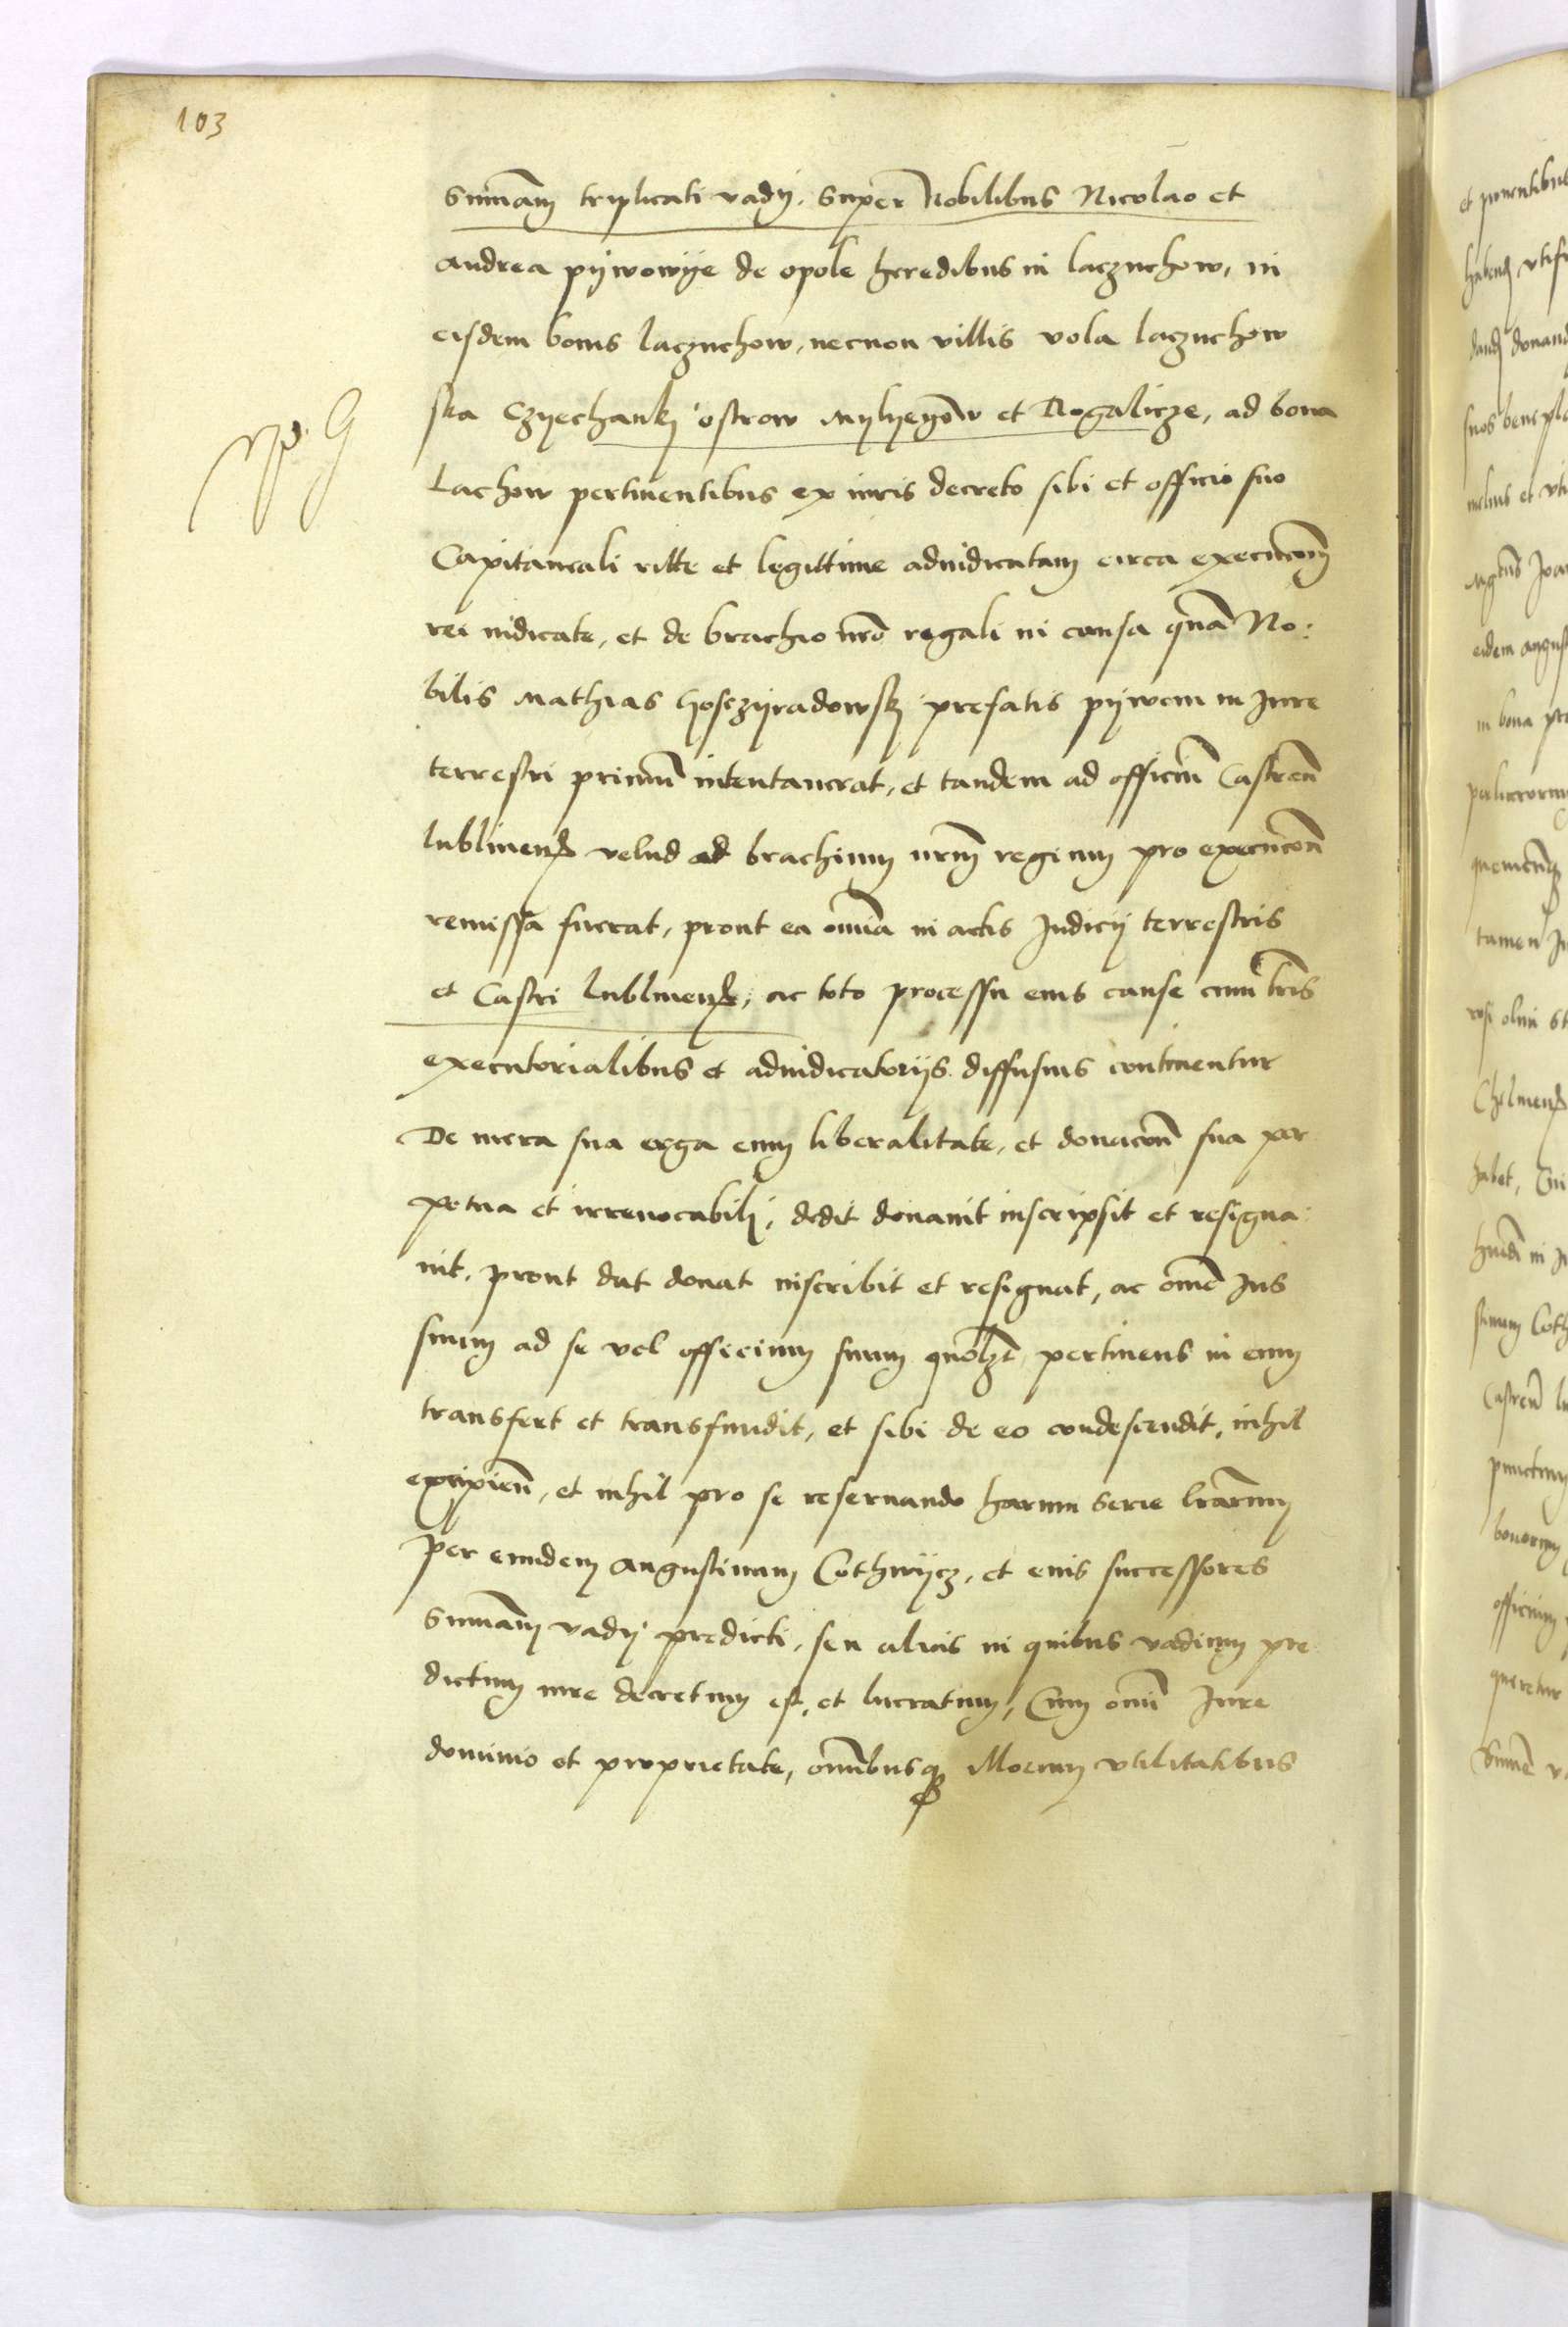 103
summam triplicati vadij. super Nobilibus Nicolao et
Andrea pijwowije de opole heredibus in laczuchow, in
eisdem bonis laczuchow, necnon villis vola laczuchow
ska Czyechanky ostrow Mylyeyow et Rogalicze, ad bona
Lachow pertinentibus ex iuris decreto sibi et officio suo
Capitaneali ritte et legittime adiudicatam circa execucionem
rei iudicate, et de brachio nro regali in causa quam No:
bilis Mathias Gosczijradowsky prefatis pijwom in Jure
terrestri primum intentauerat, et tandem ad officium Castren
lublinens velud ad brachium nrm regium pro execucion
remissa fuerat, prout ea omnia in actis Judicij terrestris
et Castri lublinens, ac toto processu eius cause cum lris
executorialibus et adiudicatorijs diffusius continentur
De mera sua erga eum liberalitate, et donacion sua per
petua et irreuocabili, dedit donauit inscripsit et resigna:
uit, prout dat donat inscribit et resignat, ac omne Jus
suum ad se vel officium suum quolzt pertinens in eum
transfert et transfundit, et sibi de eo condescendit, nihil
excipien, et nihil pro se reseruando harum serie lrarum
per eundem Augustinum Cothwijcz, et eius successores
summam vadij predicti, seu alicis in quibus vadium pre
dictum iure decretum est, et lucratum, Cum omni Jure
dominio et proprietate, omnibusq illorum vtilitatibus